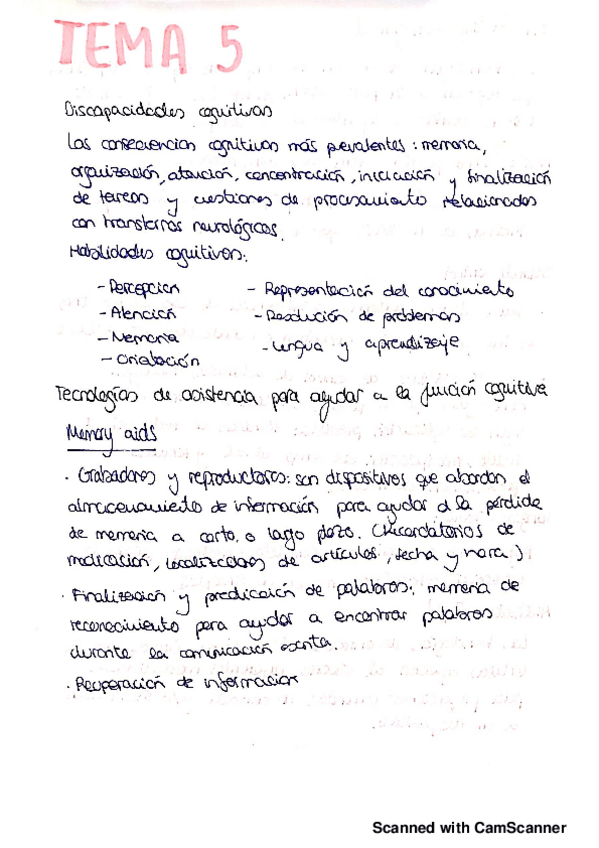 TEMA 5
Discapacidades cognitivas
Las consecuencias cognitivas más prevalentes: memoria,
organización, atención, concentración, iniciación y finalización
de tareas y cuestiones de procesamiento relacionados
con transtornos neurológicos.
Habilidades cognitivas:
- Percepción - Representación del conocimiento
- Atención - Resolución de problemas
- Memoria - Lengua y aprendizaje
- Orientación
Tecnologías de asistencia para ayudar a la función cognitiva
Memory aids
· Grabadores y reproductores: son dispositivos que abordan el
almacenamiento de información para ayudar a la pérdida
de memoria a corto, o largo plazo. (Recordatorios de
medicación, localizaciones de artículos, fecha y hora)
· Finalización y predicación de palabras: memoria de
reconocimiento para ayudar a encontrar palabras
durante la comunicación escrita.
· Recuperación de información
Scanned with CamScanner